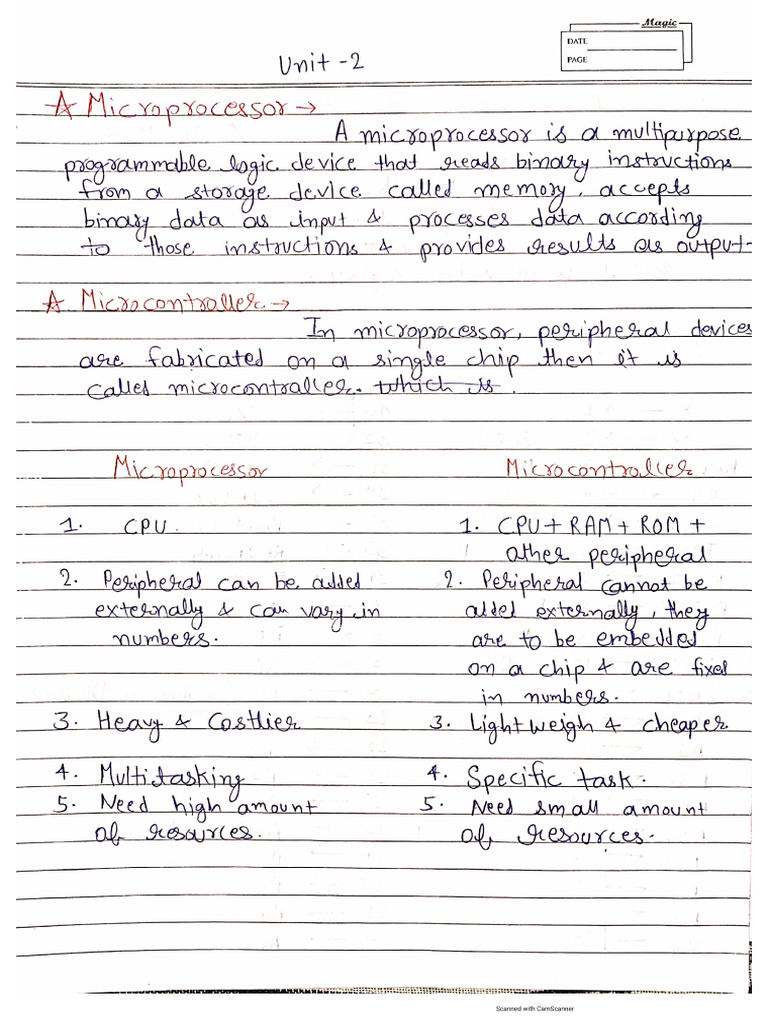 Magic
DATE
PAGE
Unit -2
☆ Microprocessor →
A microprocessor is a multipurpose
programmable logic device that reads binary instructions
from a storage device called memory, accepts
binary data as input & processes data according
to those instructions & provides results as output.
☆ Microcontroller →
In microprocessor, peripheral devices
are fabricated on a single chip then it is
called microcontroller. which is.
Microprocessor Microcontroller
1. CPU. 1. CPU + RAM + ROM +
other peripheral
2. Peripheral can be added 2. Peripheral cannot be
externally & can vary in added externally, they
numbers. are to be embedded
on a chip & are fixed
in numbers.
3. Heavy & Costlier 3. Lightweigh & cheaper
4. Multitasking 4. Specific task.
5. Need high amount 5. Need small amount
of resources. of resources.
Scanned with CamScanner